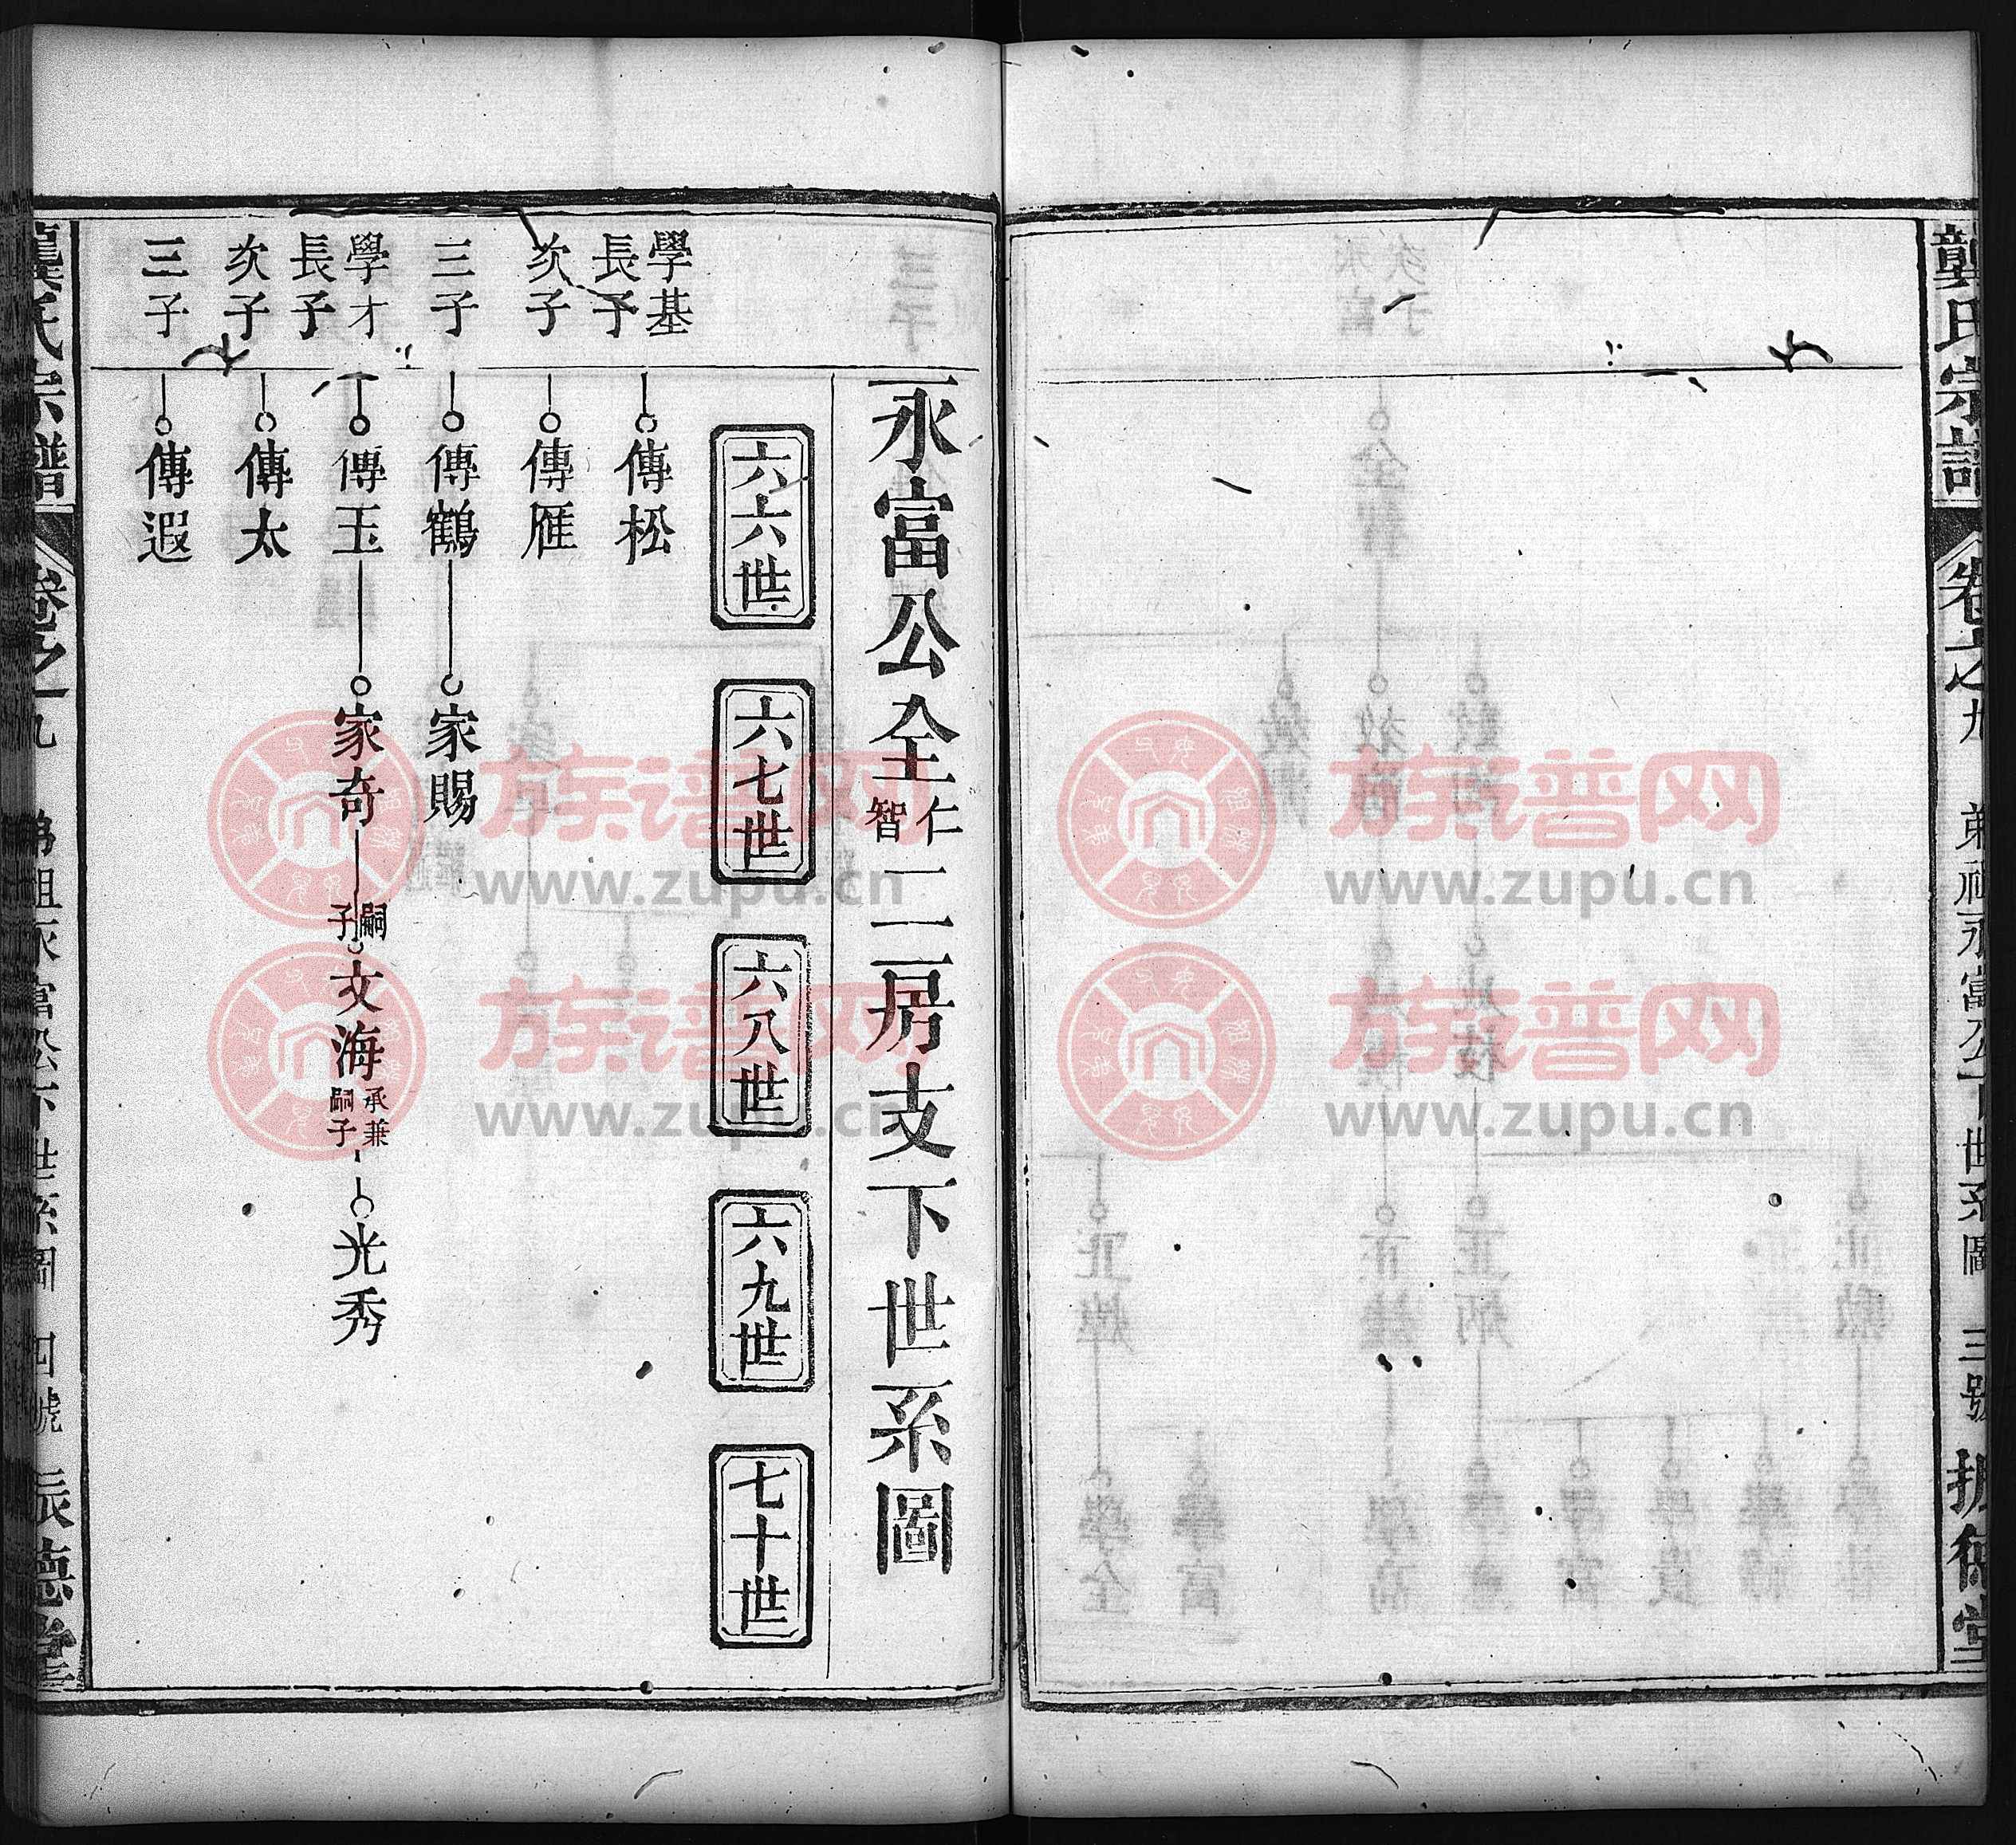 龔氏宗譜
卷之九
弟祖永富公下世系圖
三號
振德堂
永富公全仁智二房支下世系圖
六六世
六七世
六八世
六九世
七十世
學基長子
傳松
次子
傳雁
三子
傳鶴
家賜
學才長子
傳玉
家奇
嗣子
文海
承兼嗣子
光秀
次子
傳太
三子
傳遐
龔氏宗譜
卷之九
弟祖永富公下世系圖
四號
振德堂
族谱网
www.zupu.cn
族谱网
www.zupu.cn
族谱网
www.zupu.cn
族谱网
www.zupu.cn